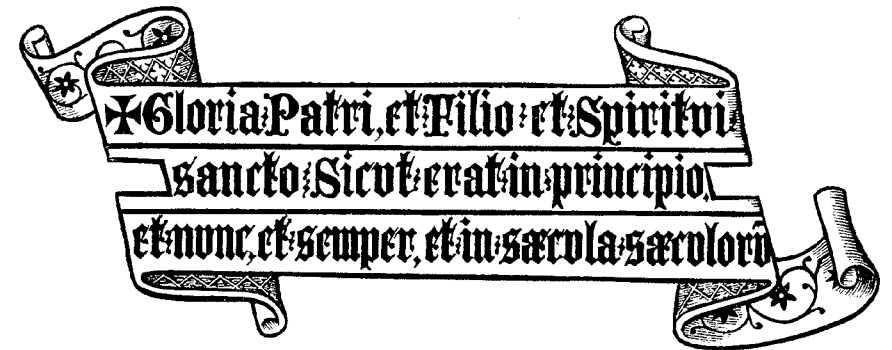 ✠Gloria Patri, et Filio et Spiritvi
sancto Sicvt erat in principio,
et nvnc, et semper, et in sæcvla sæcvlorv̄